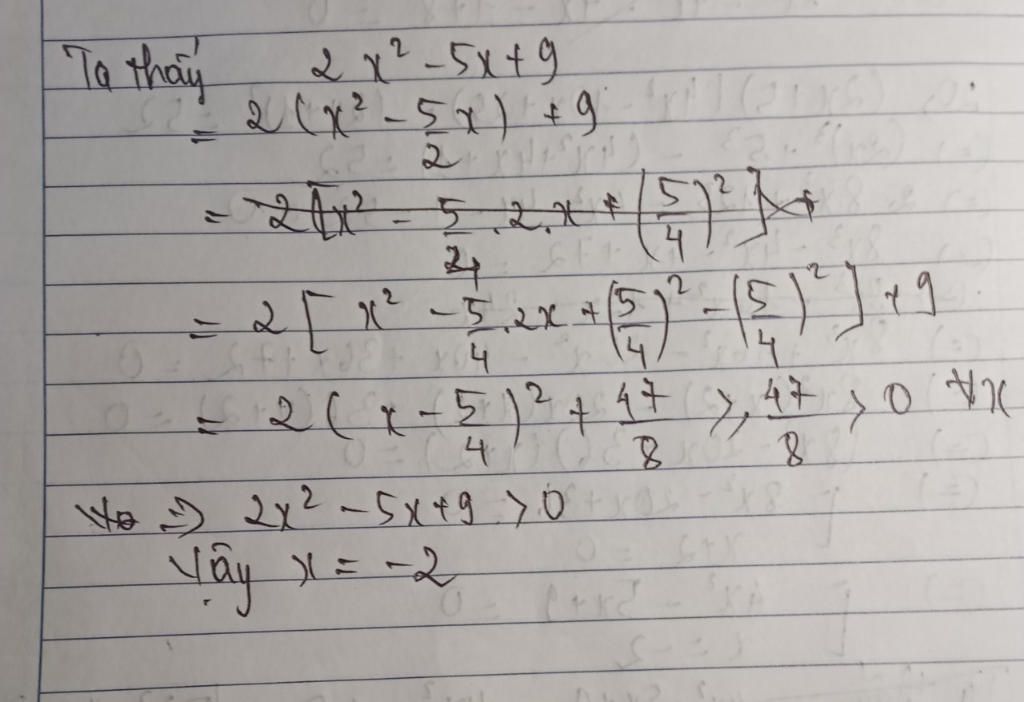 Ta thấy 2x² - 5x + 9
= 2(x² - 5/2 x) + 9
= 2[x² - 5/4 . 2x + (5/4)² - (5/4)²] + 9
= 2(x - 5/4)² + 47/8 ≥ 47/8 > 0 ∀x
=> 2x² - 5x + 9 > 0
Vậy x = -2